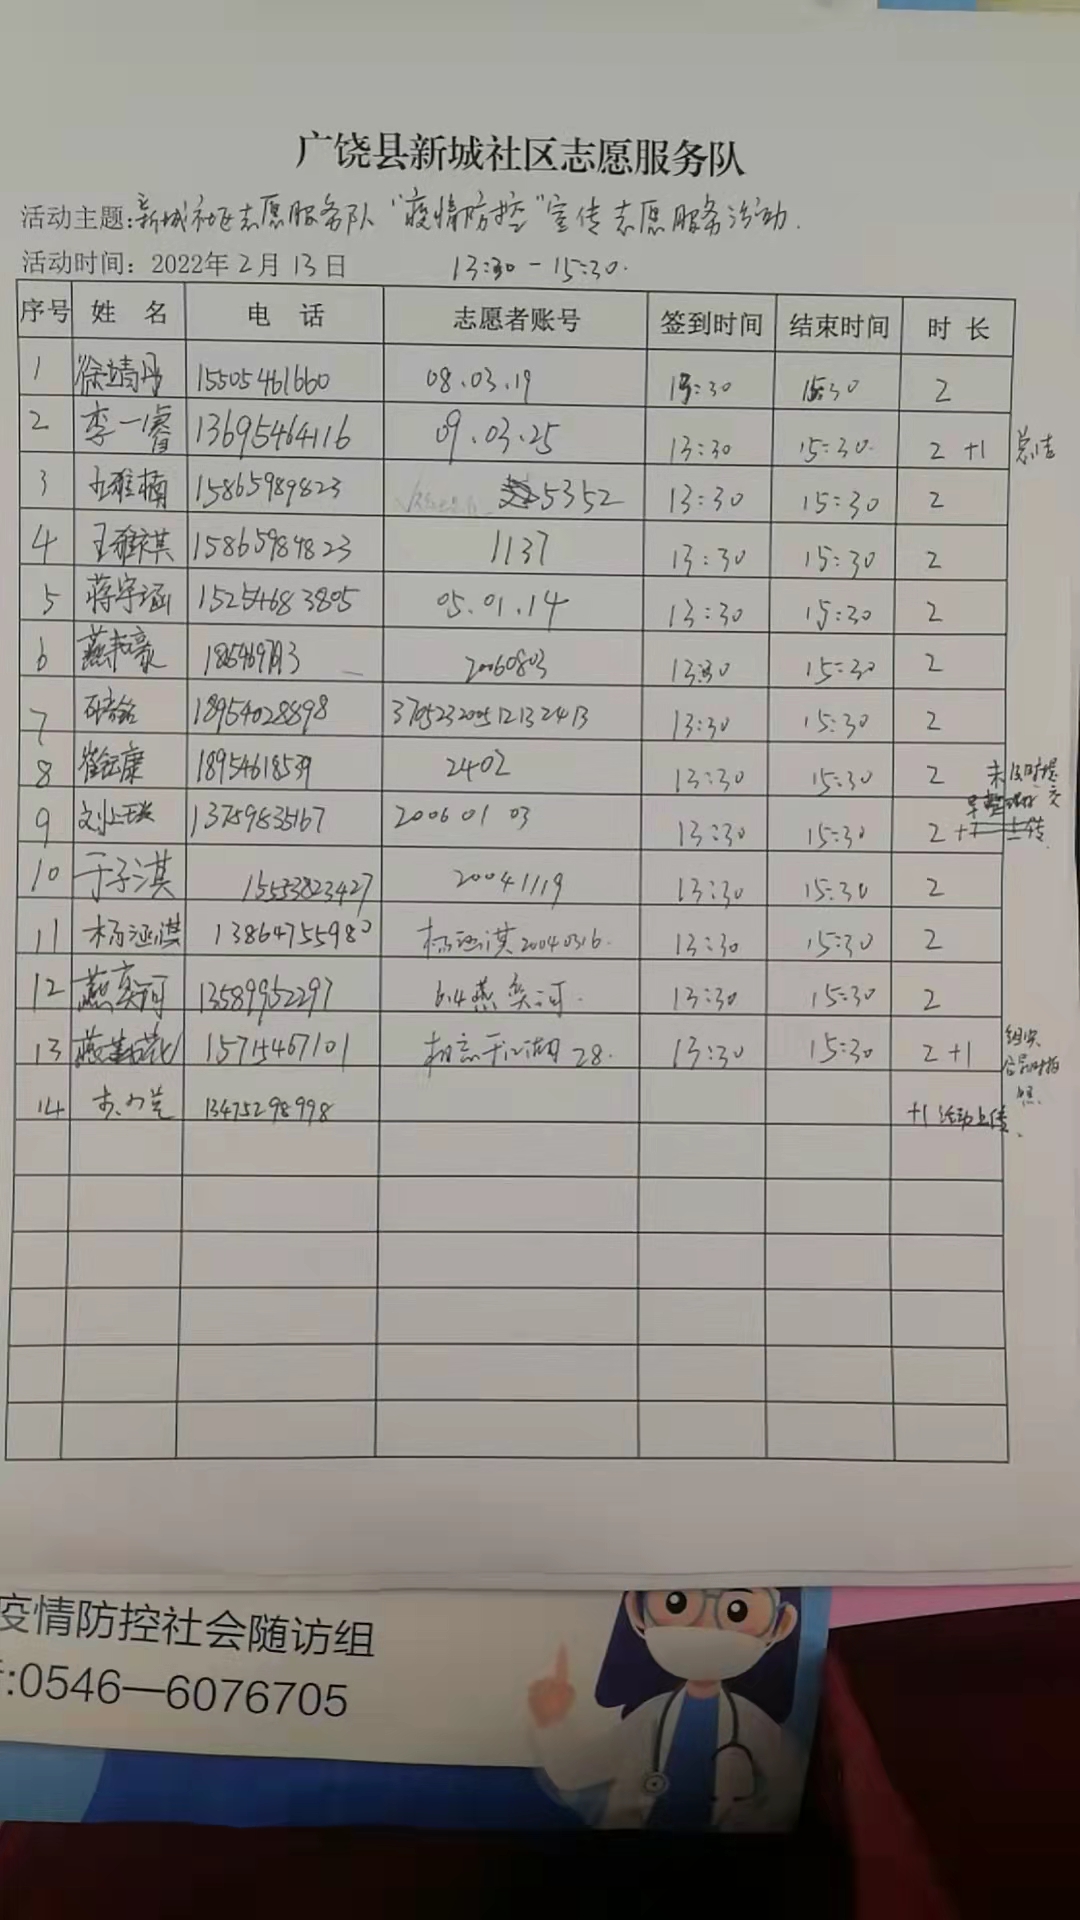 广饶县新城社区志愿服务队
活动主题:新城社区志愿服务队“疫情防控”宣传志愿服务活动.
活动时间：2022年2月13日 13:30-15:30.
序号 姓 名 电 话 志愿者账号 签到时间 结束时间 时 长
1 徐靖丹 15505461660 08.03.19 13:30 15:30 2
2 李一睿 13695464116 09.03.25 13:30 15:30. 2 +1 总结
3 王雅楠 15865989823 5352 13:30 15:30 2
4 王雅祺 15865989823 1137 13:30 15:30 2
5 蒋宇涵 15254683805 05.01.14 13:30 15:30 2
6 燕 豪 20060803 13:30 15:30 2
7 18954028898 370523200512132413 13:30 15:30 2
8 崔钰康 18954618539 2402 13:30 15:30 2 未及时提交
9 13759835167 2006 01 03 13:30 15:30 2 + 上传
10 于子淇 15533823427 20041119 13:30 15:30 2
11 杨涵淇 13864755980 杨涵淇20040316. 13:30 15:30 2
12 燕奕河 13589952297 6.4燕奕河. 13:30 15:30 2
13 燕 15715467101 相忘于江湖28. 13:30 15:30 2 +1 组织 拍照.
14 13475298998 +1 活动上传、
疫情防控社会随访组
:0546—6076705